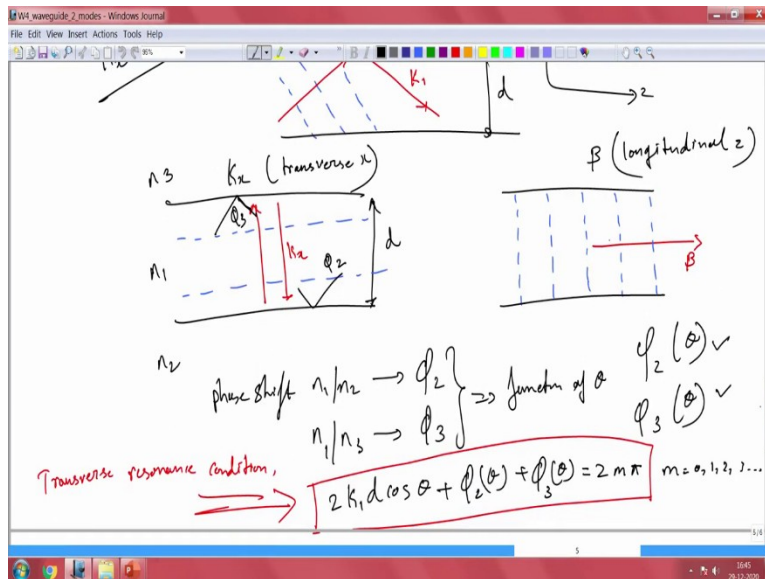 W4_waveguide_2_modes - Windows Journal
File Edit View Insert Actions Tools Help
95%
K₁
d
z
n3
Kx (transverse x)
β (longitudinal z)
φ3
n1
Kx
φ2
d
β
n2
phase shift n1/n2 → φ2
n1/n3 → φ3
⇒ function of θ
φ2(θ) ✓
φ3(θ) ✓
Transverse resonance condition,
2 K₁ d cos θ + φ2(θ) + φ3(θ) = 2 m π
m = 0, 1, 2, 3...
5/6
5
16:45
29-12-2020